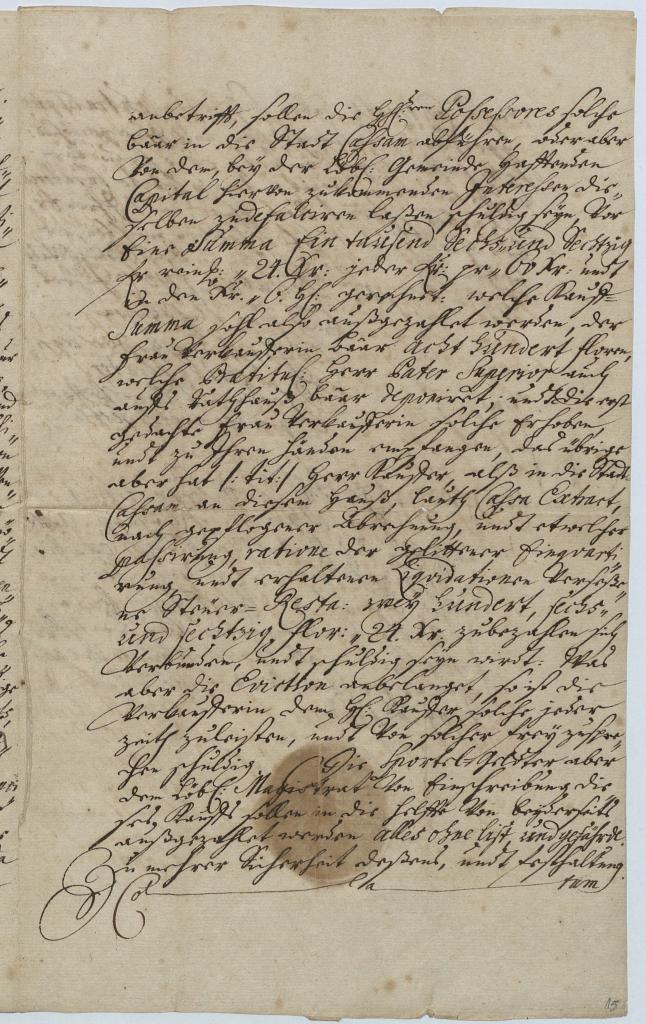 anbetrifft, sollen die Hh: Herren Possessores solche
bäar in die Stadt Cassam abführen, oder aber
Von dem, bey der Löbl: Gemeinde, hafftenden
Capital hiervon zukommenden Interessen die-
selben zudefalciren laßen schuldig seyn, Vor
Eine Summa Ein tausend Sechs und Sechtzig
fr 24. Xr: jeder fr: pr 60 Xr: undt
in den Xr. 6. gerechnet: welche Kauff-
Summa soll also außgezahlet werden, der
Frau Verkaufferin bäar Acht hundert floren,
welche Herr Pater Superior auch
auffs Rathhauß bäar deponiret, undt die erst
gedachte Frau Verkaufferin solche Erhoben,
undt zu Ihren händen empfangen, das übrige
aber hat /: tit: / Herr Kauffer, alß in die Stadt
Cassam an diesem Hauß, lauth Cassa Extract,
nach gepflogener Abrechnung, undt etwelcher
passirung, ratione der gelittener Einquarti
rung undt erhaltenen Liquidationen Verseße-
ne Steuer- Resta: zwey hundert, sechs-
und sechtzig flor: 24. Xr. zubezahlen sich
Verbunden, undt schuldig seyn wirdt: Was
aber die Eviction anbelanget, so ist die
Verkaufferin dem Hh: Kauffer, solche jeder
zeith zuleisten, undt Von solcher frey zuspre-
chen schuldig. Die Sportel-Gelder aber
dem Löbl: Magistrat Von Einschreibung die
ses Kauffs sollen in die helffte Von beyderseits
außgezahlet werden alles ohne list undt gefährde.
Zu mehrer Sicherheit deßens, undt festhaltung
Col la tum
15